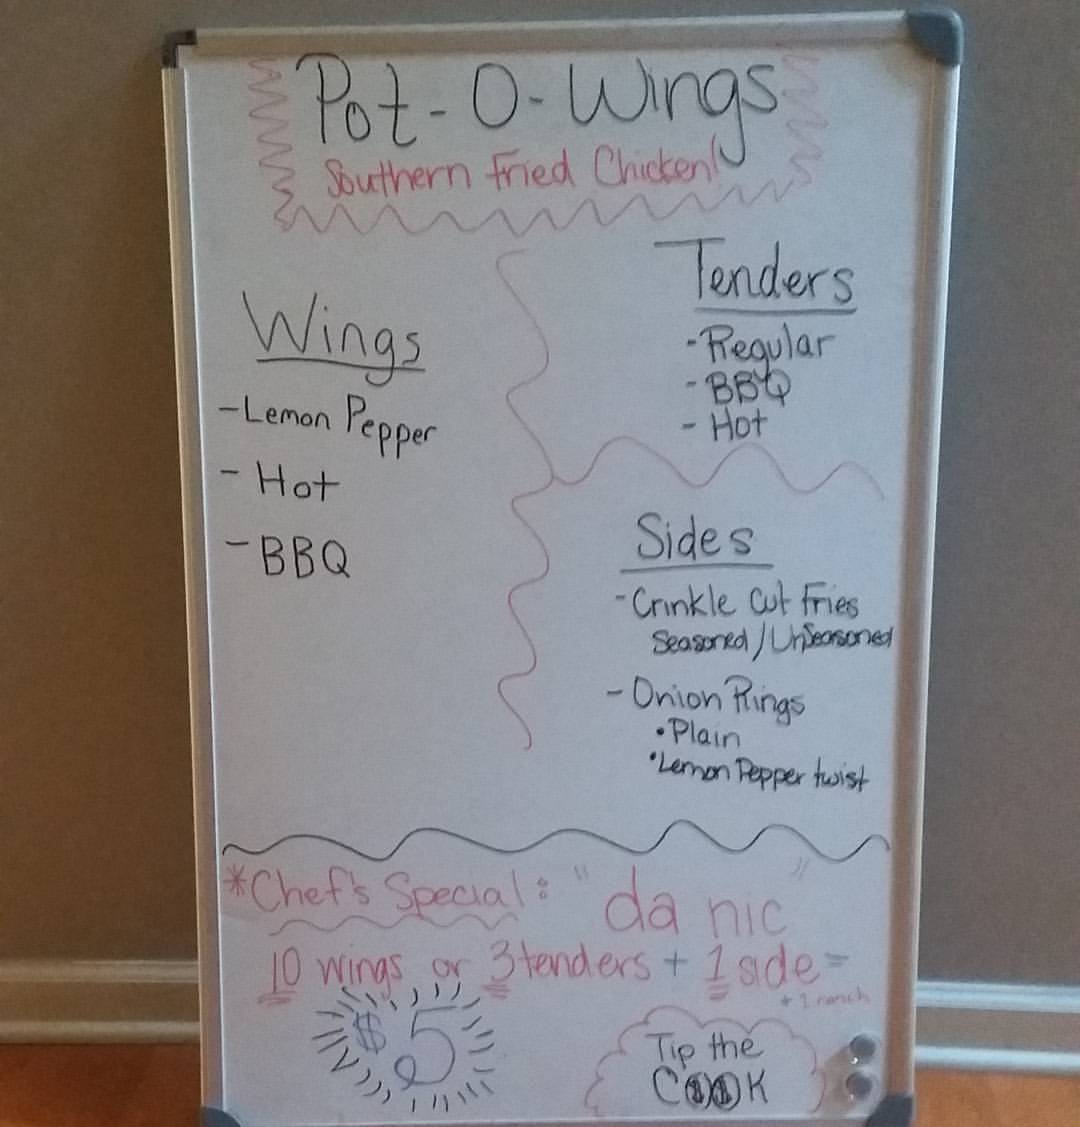 Pot-O-Wings
Southern Fried Chicken!
Wings
-Lemon Pepper
- Hot
- BBQ
Tenders
- Regular
- BBQ
- Hot
Sides
- Crinkle Cut Fries
Seasoned/UnSeasoned
- Onion Rings
• Plain
• Lemon Pepper twist
*Chef's Special: "da nic"
10 wings or 3 tenders + 1 side =
+ 1 ranch
$5
Tip the
COOK